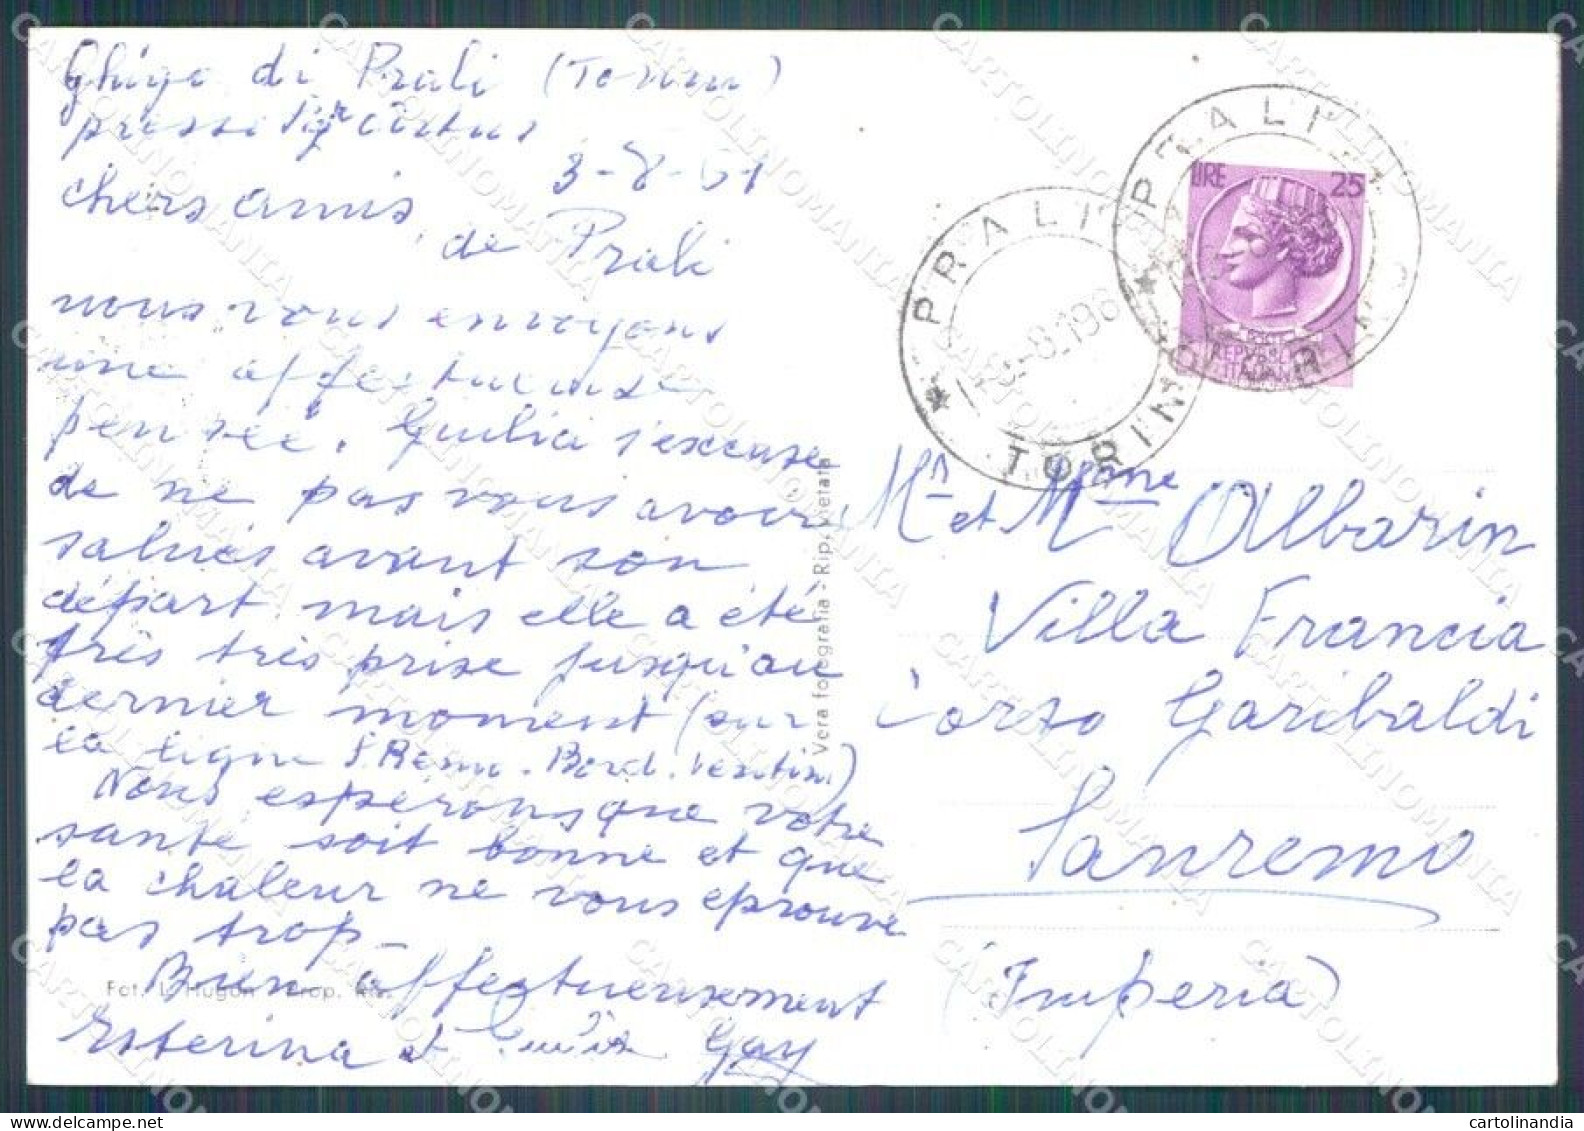 Ghigo di Prali (Torino)
presso Sigr
3-8-61
chers amis,
de Prali
nous vous envoyons
une affectueuse
pensée. Giulia s'excuse
de ne pas vous avoir
salués avant son
départ mais elle a été
très très prise jusqu'au
dernier moment (sur
la ligne S. Remo - Bord. Ventim)
Nous espérons que votre
santé soit bonne et que
la chaleur ne vous eprouve
pas trop -
Bien affectueusement
Esterina et Gay
Fot. L. Hugon - Prop. Ris.
Vera fotografia - Rip. vietata
PRALI
TORINO
-8.196
PRALI
TORINO
LIRE 25
POSTE
REPUBBLICA
ITALIANA
Mr et Mme Albarin
Villa Francia
Corso Garibaldi
Sanremo
(Imperia)
CARTOLINOMANIA
cartolinandia